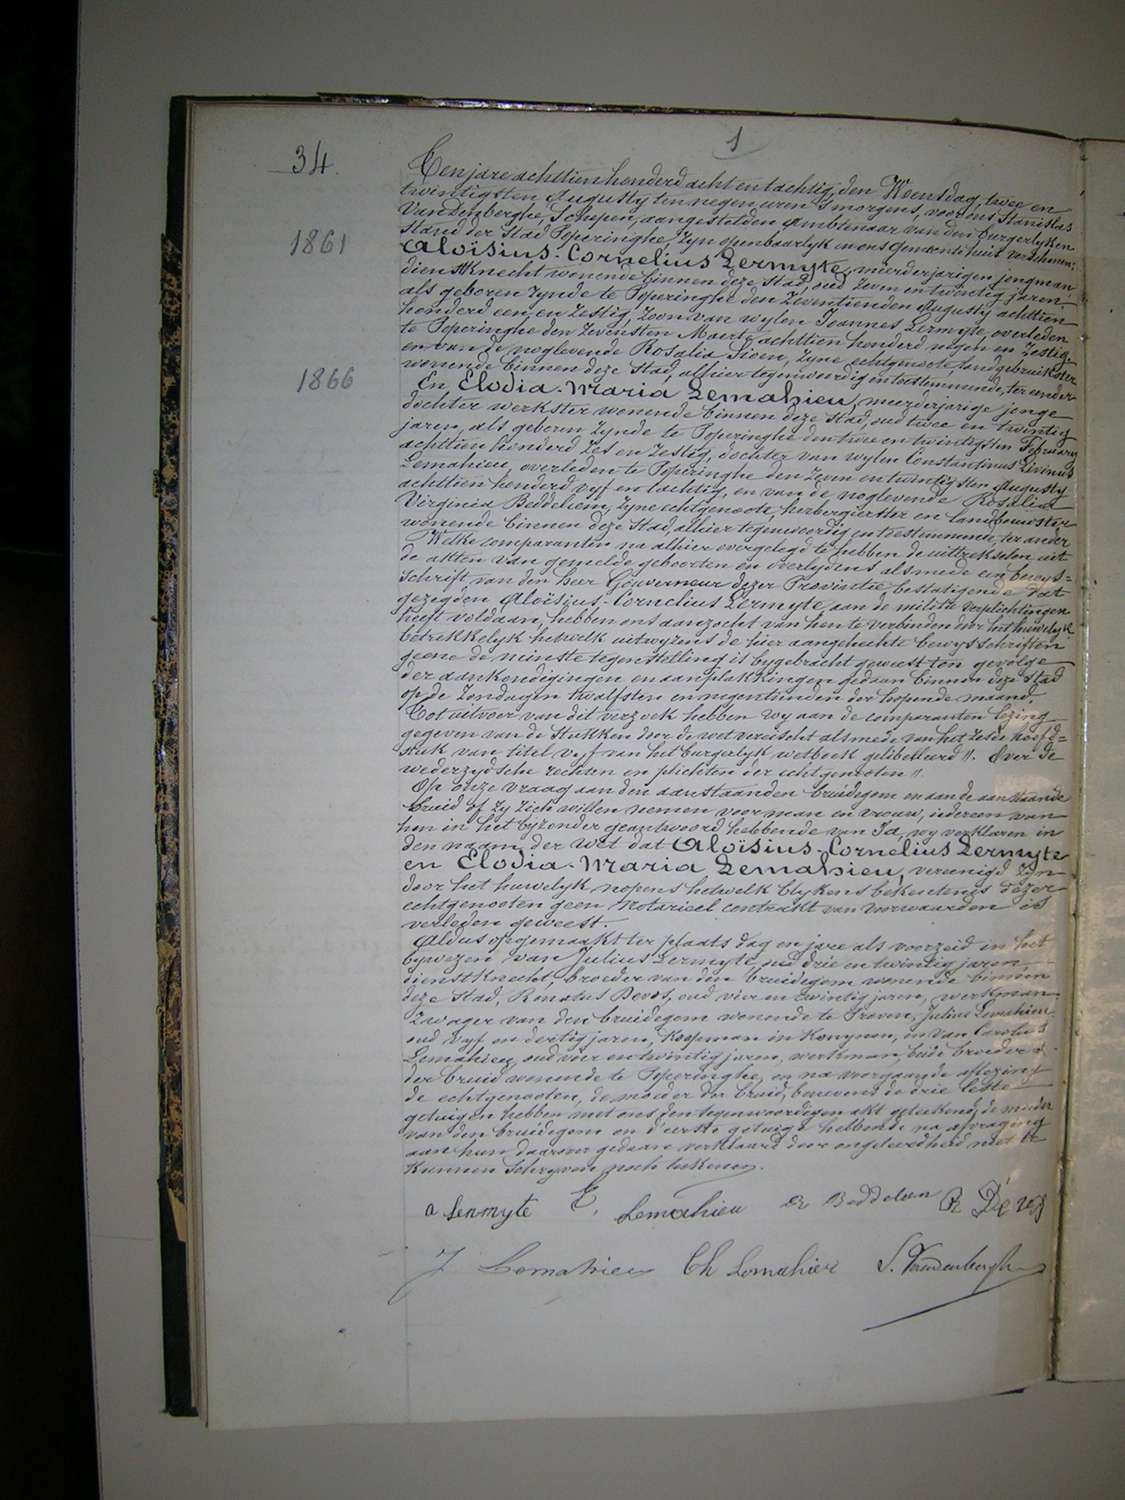 1
34.
Ten jare achttien honderd acht en tachtig, den Woensdag, twee en
twintigsten Augusty ten negen uren 's morgens, voor ons Stanislas
Vandenberghe, Schepen, aangestelden Ambtenaar van den burgerlyken
stand der stad Poperinghe, zyn openbaarlyk in ons Gemeentehuis verschenen;
1861
Aloisius-Cornelius Lermyte, meerderjarigen jongman,
dienstknecht wonende binnen deze stad, oud zeven en twintig jaren,
als geboren zynde te Poperinghe den zeventienden Augusty achttien
honderd een en zestig, zoon van wylen Joannes Lermyte, overleden
te Poperinghe den zevensten Maerte achttien honderd negen en zestig
en van de noglevende Rosalia Sioen, zyne echtgenoote landgebruikster
wonende binnen deze stad, alhier tegenwoordig en toestemmende, ter eender
1866
En Elodia-Maria Lemahieu, meerderjarige jonge
dochter werkster wonende binnen deze stad, oud twee en twintig
jaren, als geboren zynde te Poperinghe den twee en twintigsten February
achttien honderd zes en zestig, dochter van wylen Constantinus Livinus
Lemahieu, overleden te Poperinghe den zeven en twintigsten Augusty
achttien honderd vyf en tachtig, en van de noglevende Rosalia
Virginia Beddeleem, zyne echtgenoote herbergierster en landbouwster
wonende binnen deze stad, alhier tegenwoordig en toestemmende, ter ander
Welke comparanten na alhier overgelegd te hebben de uittrekselen uit
de akten van gemelde geboorten en overlydens alsmede een bewys=
schrift van den heer Gouverneur dezer Provincie, bestatigende dat
gezegden Aloïsius-Cornelius Lermyte, aan de militie verplichtingen
heeft voldaan, hebben ons aanzocht van hen te verbinden door het huwelyk
betrekkelyk hetwelk uitwyzens de hier aangehechte bewysschriften
geene de minste tegenstelling is bygebracht geweest ten gevolge
der aankondigingen en aanplakkingen gedaan binnen deze stad
op de zondagen twalfsten en negentienden der loopende maand.
Tot uitvoer van dit verzoek hebben wy aan de comparanten lezing
gegeven van de stukken door de wet vereischt alsmede van het zesde hoofd=
stuk van titel vyf van het burgerlyk wetboek gelibelleerd ". Over de
wederzydsche rechten en plichten der echtgenooten ".
Op onze vraag aan den aanstaanden bruidegom en aan de aanstaande
bruid of zy zich willen nemen voor man en vrouw, iedereen van
hen in het byzonder geantwoord hebbende van Ja, wy verklaren in
den naam der wet dat Aloisius-Cornelius Lermyte
en Elodia-Maria Lemahieu, vereenigd zyn
door het huwelyk nopens hetwelk blykens bekentenis dezer
echtgenooten geen notarieel contrakt van voorwaarden is
verleden geweest.
Aldus opgemaakt ter plaats dag en jare als voorzeid in het
bywezen van Julius Lermyte, oud drie en twintig jaren
dienstknecht, broeder van den bruidegom wonende binnen
deze stad, Renatus Devos, oud vier en twintig jaren, werkman
zwager van den bruidegom wonende te Proven, Julius Lemahieu
oud vyf en dertig jaren, koopman in Konynen, en van Carolus
Lemahieu, oud vier en twintig jaren, werkman beide broeders
der bruid wonende te Poperinghe, en na voorgaande aflezing
de echtgenooten, de moeder der bruid, benevens de drie leste
getuigen hebben met ons den tegenwoordigen akt geteekend, de moeder
van den bruidegom en d'eerste getuige hebbende na afvraging
aan hun daarover gedaan verklaard door ongeleerdheid niet te
kunnen schryven noch teekenen.
a Lermyte E. Lemahieu R Beddeleem R Devos
J Lemahieu Ch Lemahieu S. Vandenberghe